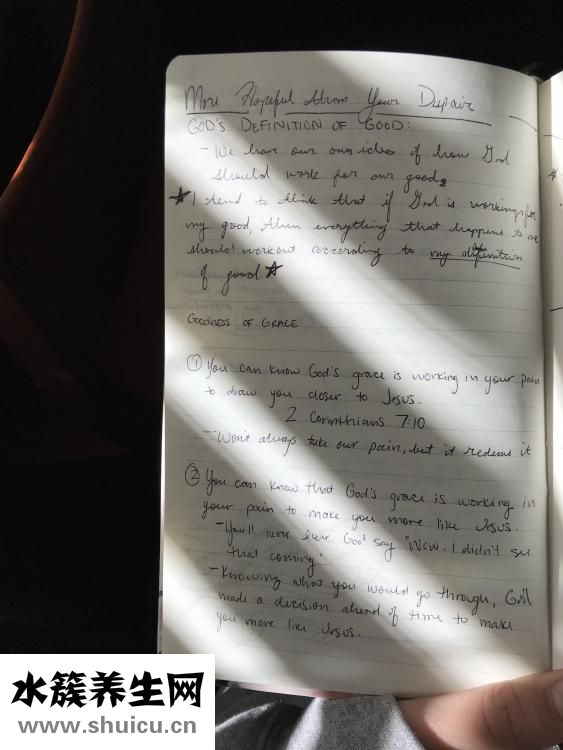 More Hopeful than Your Despair
GOD'S DEFINITION OF GOOD:
- We have our own idea of how God
should work for our good.
★ I tend to think that if God is working for
my good, then everything that happens to me
should workout according to my definition
of good ★
GOODNESS OF GRACE:
① You can know God's grace is working in your pain
to draw you closer to Jesus.
2 Corinthians 7:10
- Won't always take our pain, but it redeems it
② You can know that God's grace is working in
your pain to make you more like Jesus.
- You'll never hear God say "Wow. I didn't see
that coming."
- Knowing what you would go through, God
made a decision ahead of time to make
you more like Jesus.
水簇养生网
www.shuicu.cn